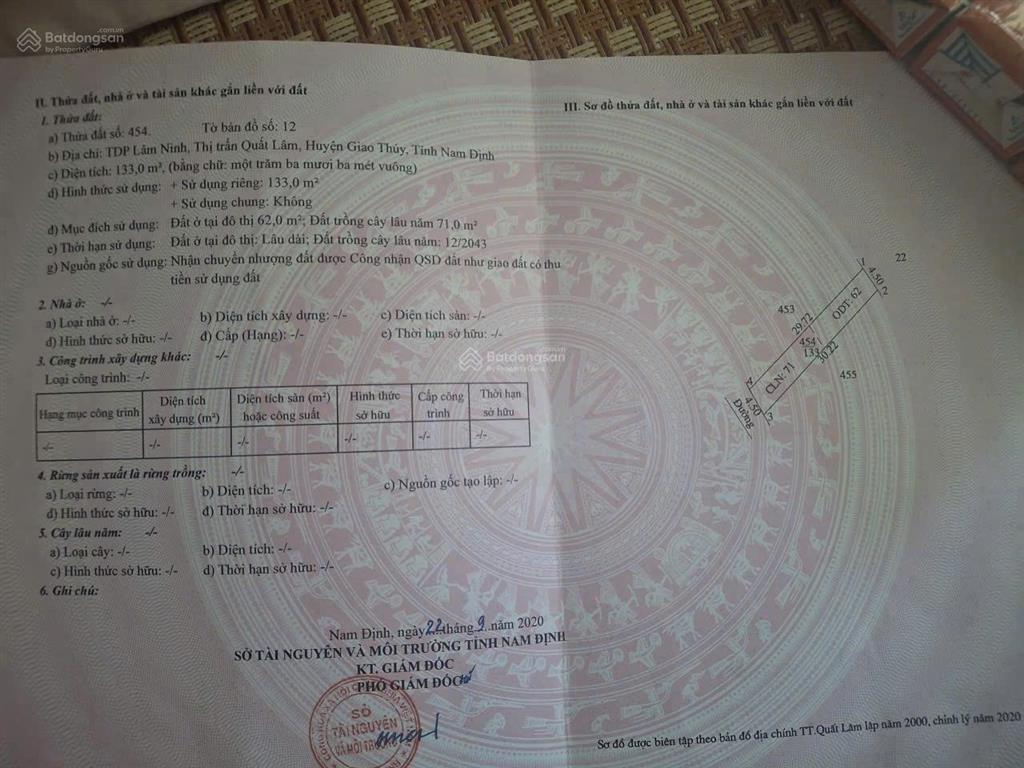 Batdongsan
.com.vn
by PropertyGuru
II. Thửa đất, nhà ở và tài sản khác gắn liền với đất
1. Thửa đất:
a) Thửa đất số: 454. Tờ bản đồ số: 12
b) Địa chỉ: TDP Lâm Ninh, Thị trấn Quất Lâm, Huyện Giao Thủy, Tỉnh Nam Định
c) Diện tích: 133,0 m², (bằng chữ: một trăm ba mươi ba mét vuông)
d) Hình thức sử dụng: + Sử dụng riêng: 133,0 m²
+ Sử dụng chung: Không
đ) Mục đích sử dụng: Đất ở tại đô thị 62,0 m²; Đất trồng cây lâu năm 71,0 m²
e) Thời hạn sử dụng: Đất ở tại đô thị: Lâu dài; Đất trồng cây lâu năm: 12/2043
g) Nguồn gốc sử dụng: Nhận chuyển nhượng đất được Công nhận QSD đất như giao đất có thu
tiền sử dụng đất
2. Nhà ở: -/-
a) Loại nhà ở: -/- b) Diện tích xây dựng: -/- c) Diện tích sàn: -/-
d) Hình thức sở hữu: -/- đ) Cấp (Hạng): -/- e) Thời hạn sở hữu: -/-
3. Công trình xây dựng khác: -/-
Loại công trình: -/-
Hạng mục công trình
Diện tích
xây dựng (m²)
Diện tích sàn (m²)
hoặc công suất
Hình thức
sở hữu
Cấp công
trình
Thời hạn
sở hữu
-/- -/- -/- -/- -/- -/-
4. Rừng sản xuất là rừng trồng: -/-
a) Loại rừng: -/- b) Diện tích: -/- c) Nguồn gốc tạo lập: -/-
d) Hình thức sở hữu: -/- đ) Thời hạn sở hữu: -/-
5. Cây lâu năm: -/-
a) Loại cây: -/- b) Diện tích: -/-
c) Hình thức sở hữu: -/- d) Thời hạn sở hữu: -/-
6. Ghi chú:
Nam Định, ngày 22 tháng 9 năm 2020
SỞ TÀI NGUYÊN VÀ MÔI TRƯỜNG TỈNH NAM ĐỊNH
KT. GIÁM ĐỐC
PHÓ GIÁM ĐỐC
SỞ
TÀI NGUYÊN
VÀ MÔI TRƯỜNG
III. Sơ đồ thửa đất, nhà ở và tài sản khác gắn liền với đất
22
1
4.50
2
453
29.72
ODT: 62
454
133
30.22
455
CLN: 71
4
4.50
3
Đường
Batdongsan
.com.vn
by PropertyGuru
Sơ đồ được biên tập theo bản đồ địa chính TT.Quất Lâm lập năm 2000, chỉnh lý năm 2020
Batdongsan
.com.vn
by PropertyGuru